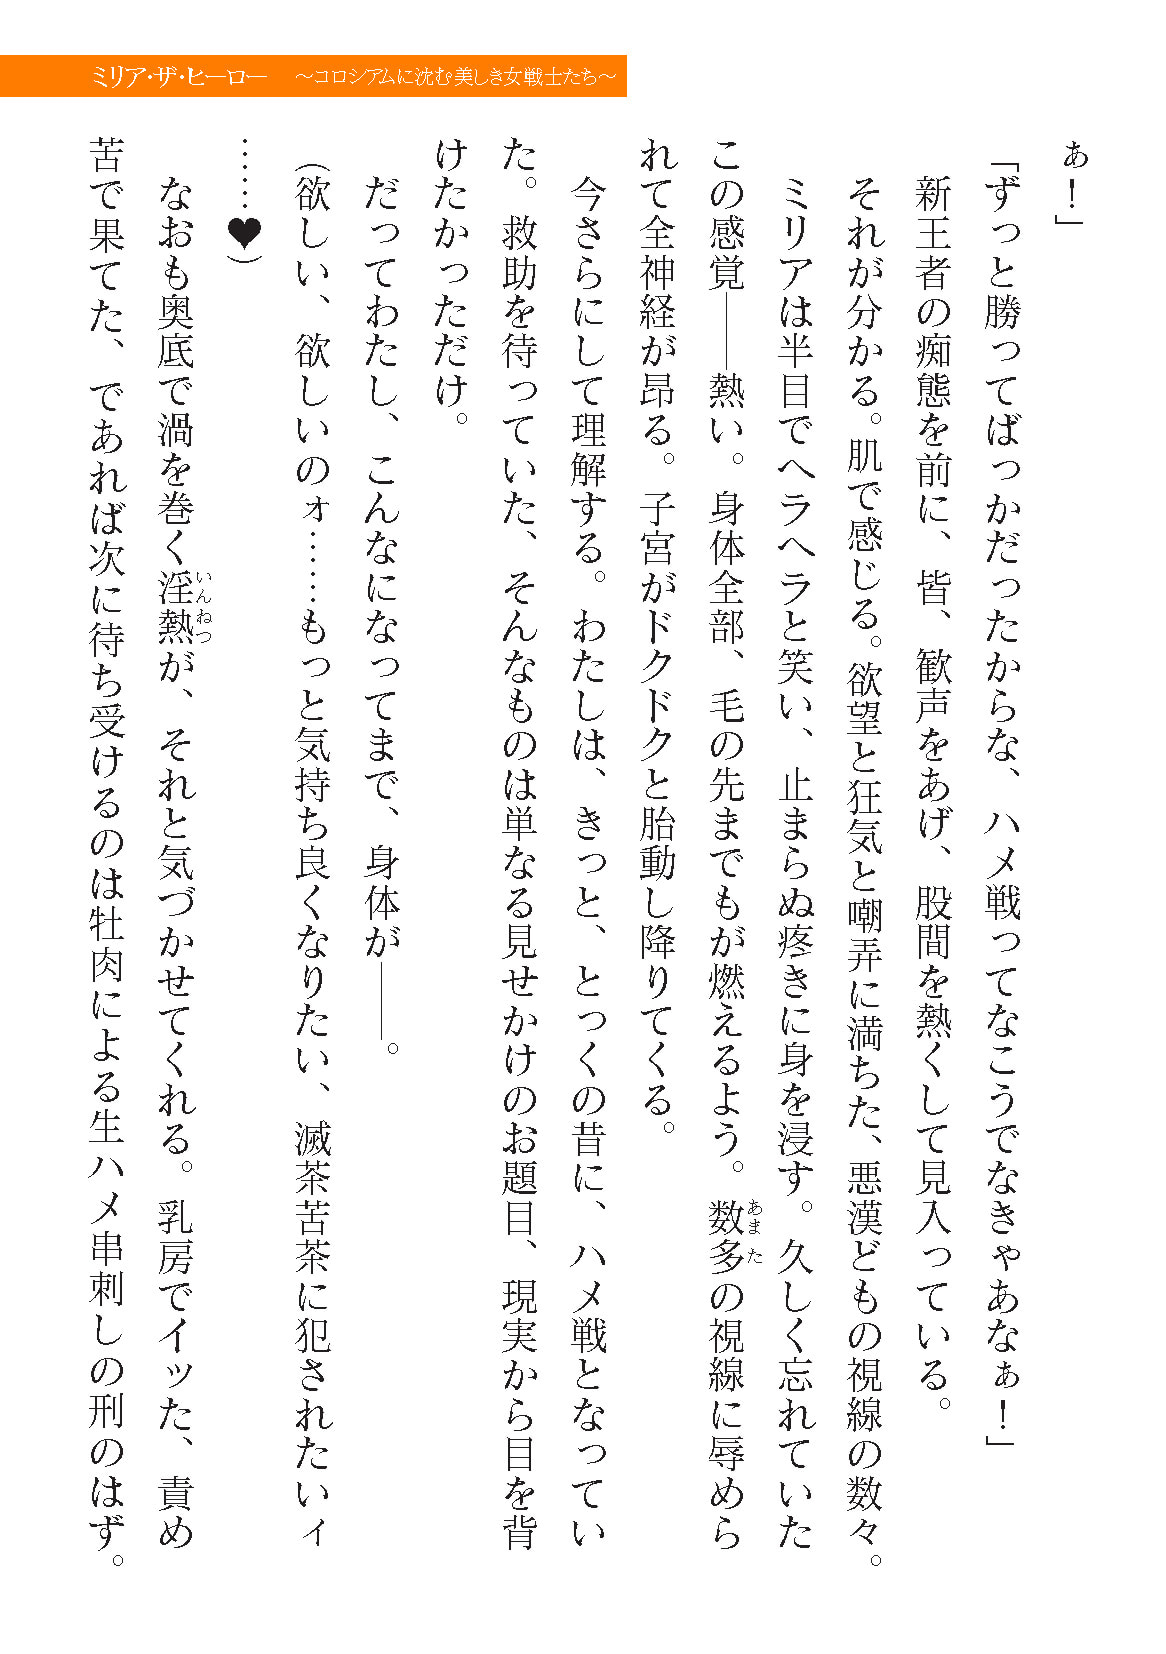 ミリア・ザ・ヒーロー　～コロシアムに沈む美しき女戦士たち～
ぁ！」
「ずっと勝ってばっかだったからな、ハメ戦ってなこうでなきゃあなぁ！」
新王者の痴態を前に、皆、歓声をあげ、股間を熱くして見入っている。
それが分かる。肌で感じる。欲望と狂気と嘲弄に満ちた、悪漢どもの視線の数々。
ミリアは半目でヘラヘラと笑い、止まらぬ疼きに身を浸す。久しく忘れていた
この感覚――熱い。身体全部、毛の先までもが燃えるよう。数多の視線に辱めら
あまた
れて全神経が昂る。子宮がドクドクと胎動し降りてくる。
今さらにして理解する。わたしは、きっと、とっくの昔に、ハメ戦となってい
た。救助を待っていた、そんなものは単なる見せかけのお題目、現実から目を背
けたかっただけ。
だってわたし、こんなになってまで、身体が――。
（欲しい、欲しいのォ……もっと気持ち良くなりたい、滅茶苦茶に犯されたいィ
……♥）
なおも奥底で渦を巻く淫熱が、それと気づかせてくれる。乳房でイッた、責め
いんねつ
苦で果てた、であれば次に待ち受けるのは牡肉による生ハメ串刺しの刑のはず。